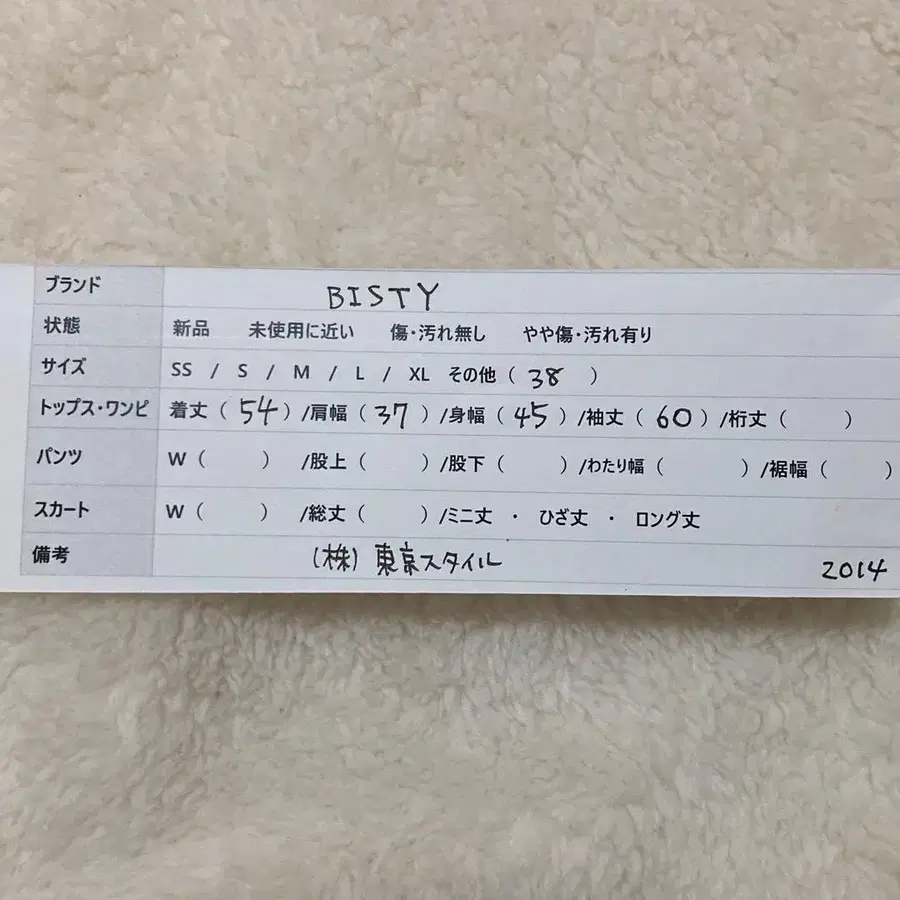 ブランド BISTY
状態 新品 未使用に近い 傷・汚れ無し やや傷・汚れ有り
サイズ SS / S / M / L / XL その他 ( 38 )
トップス・ワンピ 着丈 ( 54 ) /肩幅 ( 37 ) /身幅 ( 45 ) /袖丈 ( 60 ) /裄丈 ( )
パンツ W ( ) /股上 ( ) /股下 ( ) /わたり幅 ( ) /裾幅 ( )
スカート W ( ) /総丈 ( ) /ミニ丈 ・ ひざ丈 ・ ロング丈
備考 (株) 東京スタイル 2014